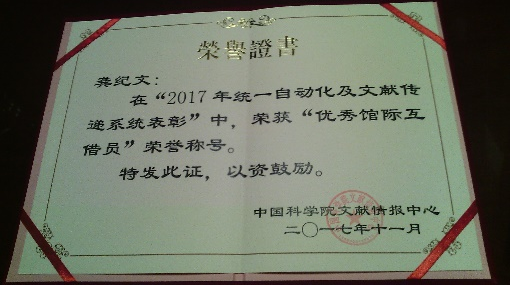 榮譽證書
龚纪文：
在“2017年统一自动化及文献传
递系统表彰”中，荣获“优秀馆际互
借员”荣誉称号。
特发此证，以资鼓励。
中国科学院文献情报中心
二〇一七年十一月